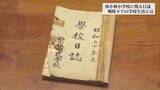 西小林小学校に残る日誌
戦時下での学校生活とは
昭和二十年度
學校日誌